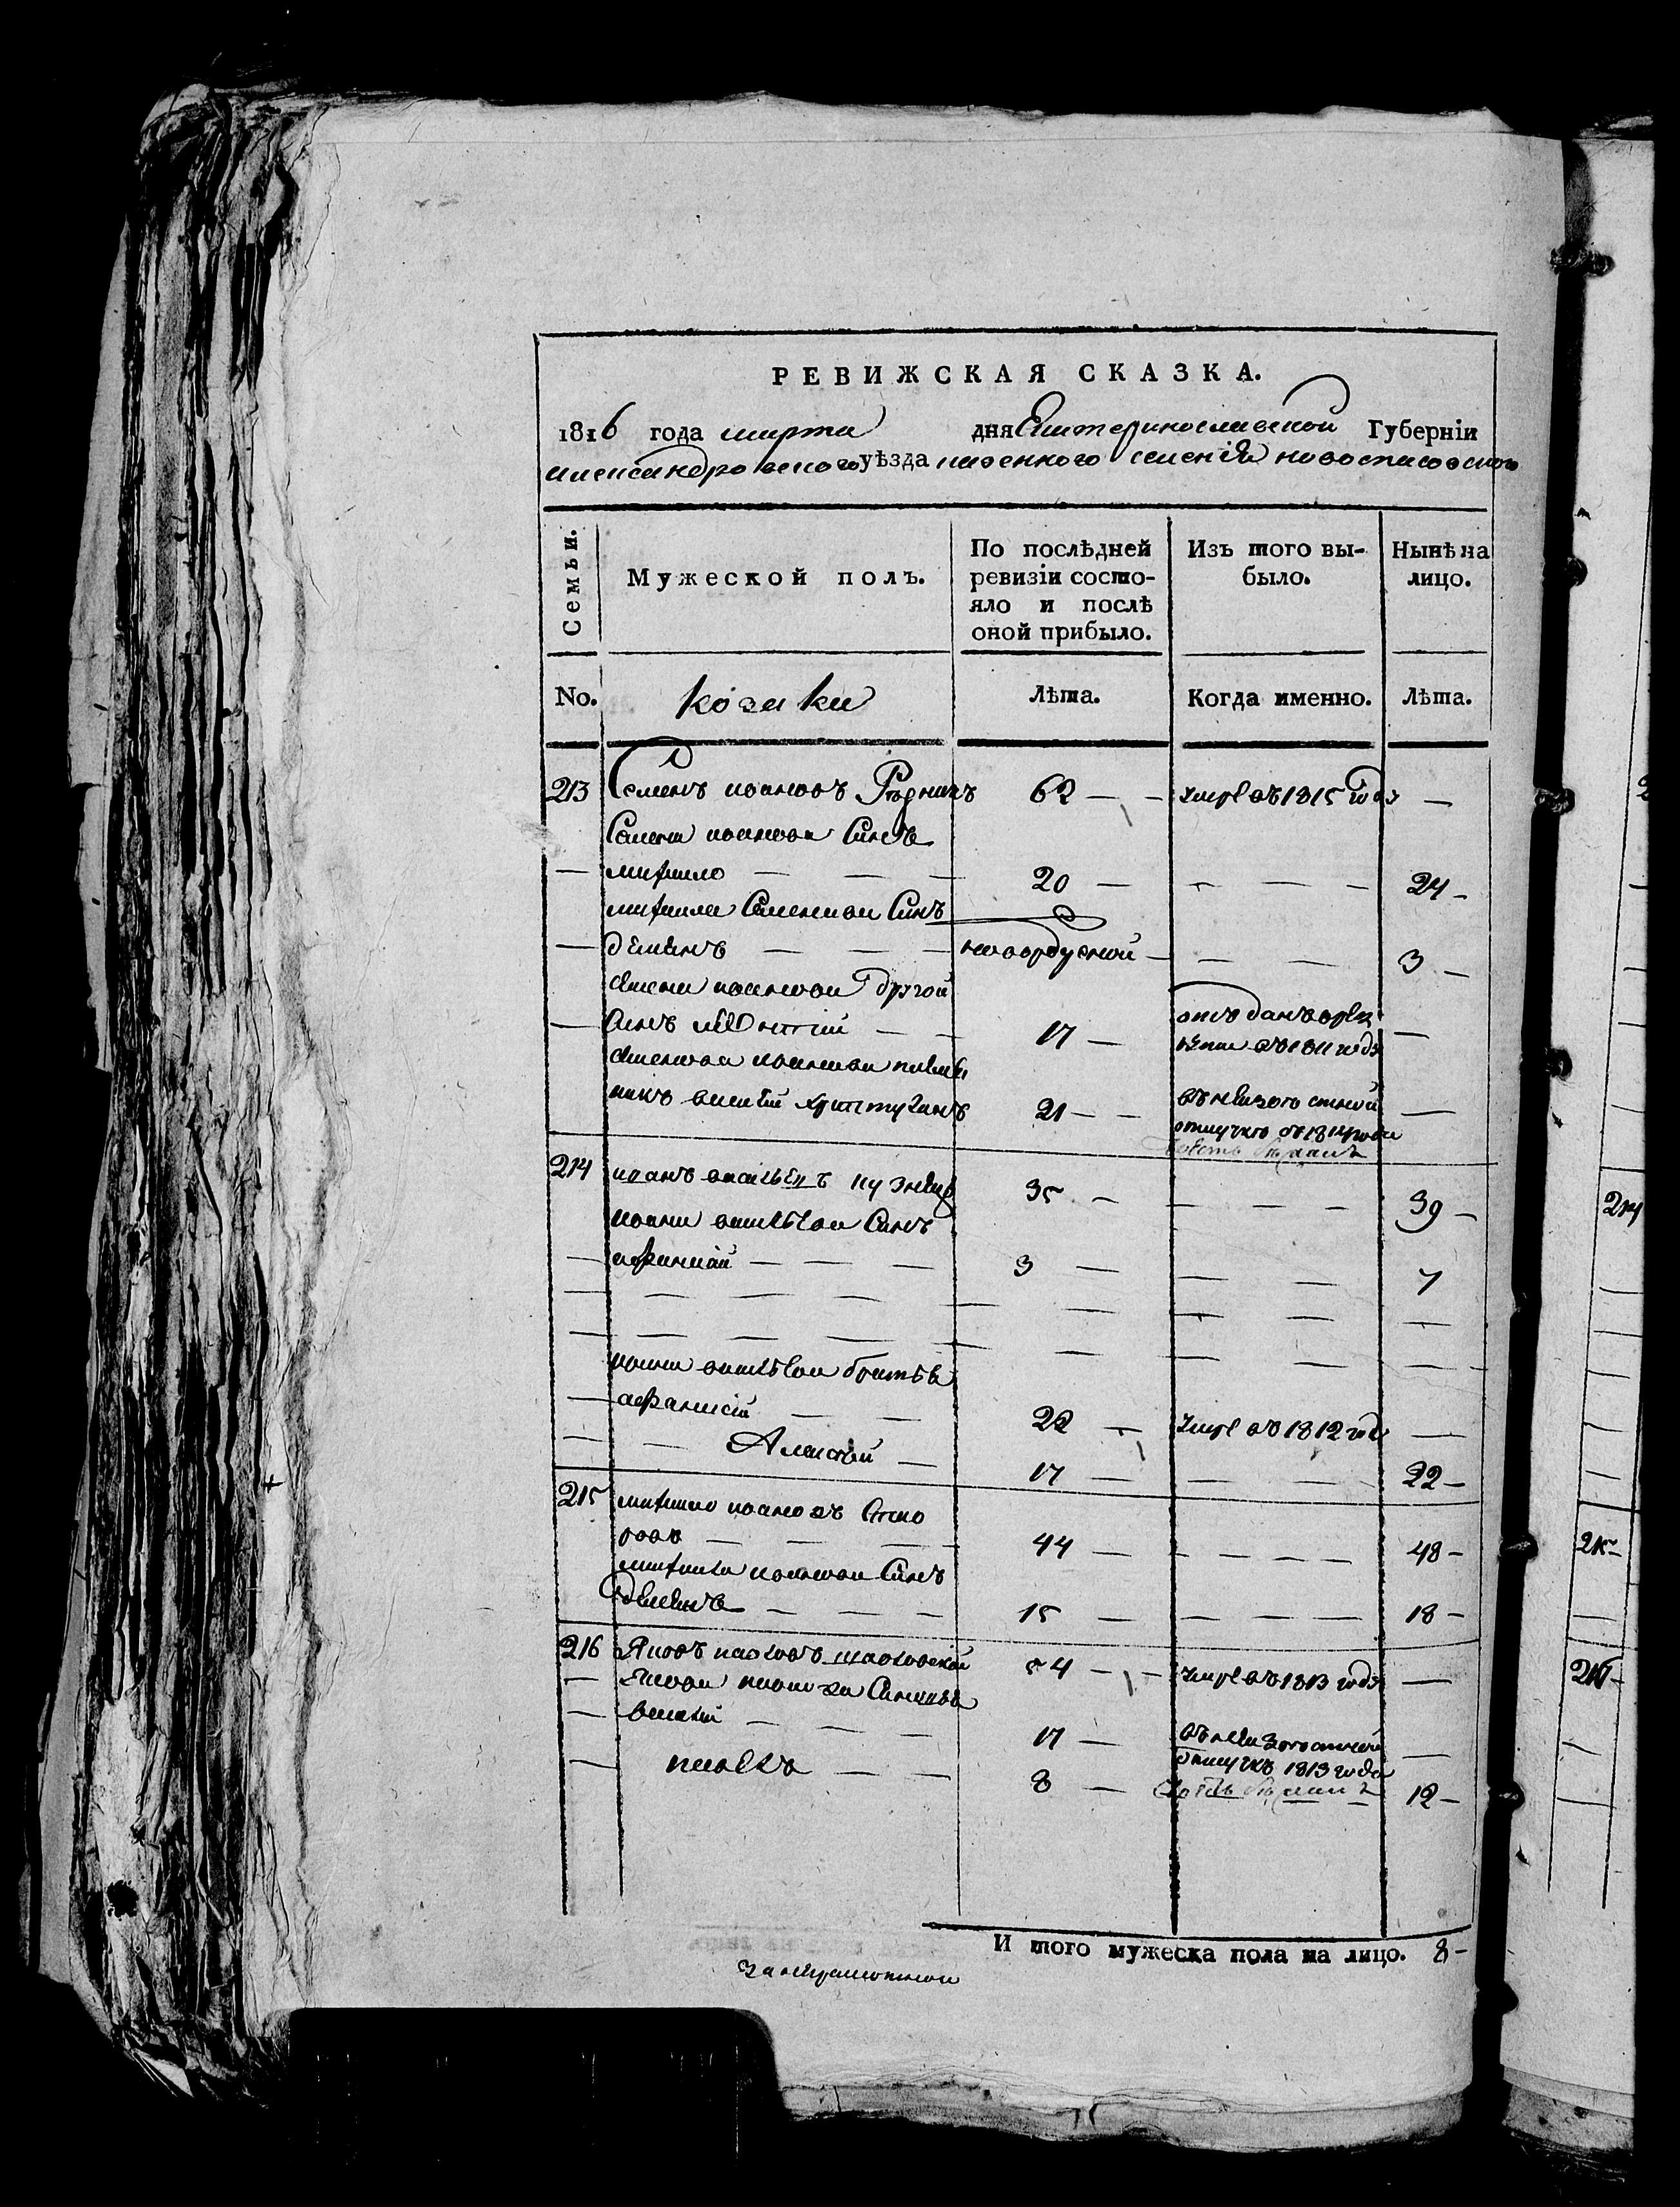 РЕВИЖСКАЯ СКАЗКА.
1816 года марта дня Екатеринославской Губерніи
александровского уѣзда казенного селенія новоспасовского
Семьи.
Мужеской полъ.
По послѣдней ревизіи состо-
яло и послѣ
оной прибыло.
Изъ того вы-
было.
Нынѣ на
лицо.
No. козаки Лѣта. Когда именно. Лѣта.
213 Семенъ ивановъ 62 — умре въ 1815 годѣ —
Семена иванова Синъ
— михаило — — — 20 — — — — 24 —
михаила Семенова Синъ
— демянъ — — — новорожденой — — — 3 —
Семена иванова другой
— Синъ леонтій — — 17 — отъданъ врек
рути въ 1811 годѣ —
Семена иванова племя
никъ василій 21 — — въ неизвестной
отлучке въ 1814 года —
214 иванъ васильевъ кузнецъ 35 — — — — 39 —
ивана васильева Синъ
— афанасій — — — 3 — — — 7
ивана васильева братья
— афанасій — — 22 — умре въ 1812 годѣ —
— — Алексѣй — 17 — — — 22 —
215 михаило ивановъ Ско
44 — — — — — 48 —
михаила иванова Синъ
— — — 15 — — — — 18 —
216 Яковъ павловъ 54 — — умре въ 1813 годѣ —
— Якова павлова Синовья
— василій — — — 17 — въ неизвестной
отлучкѣ 1813 года —
— павелъ — — 8 — 12 —
И того мужеска пола на лицо. 8 —